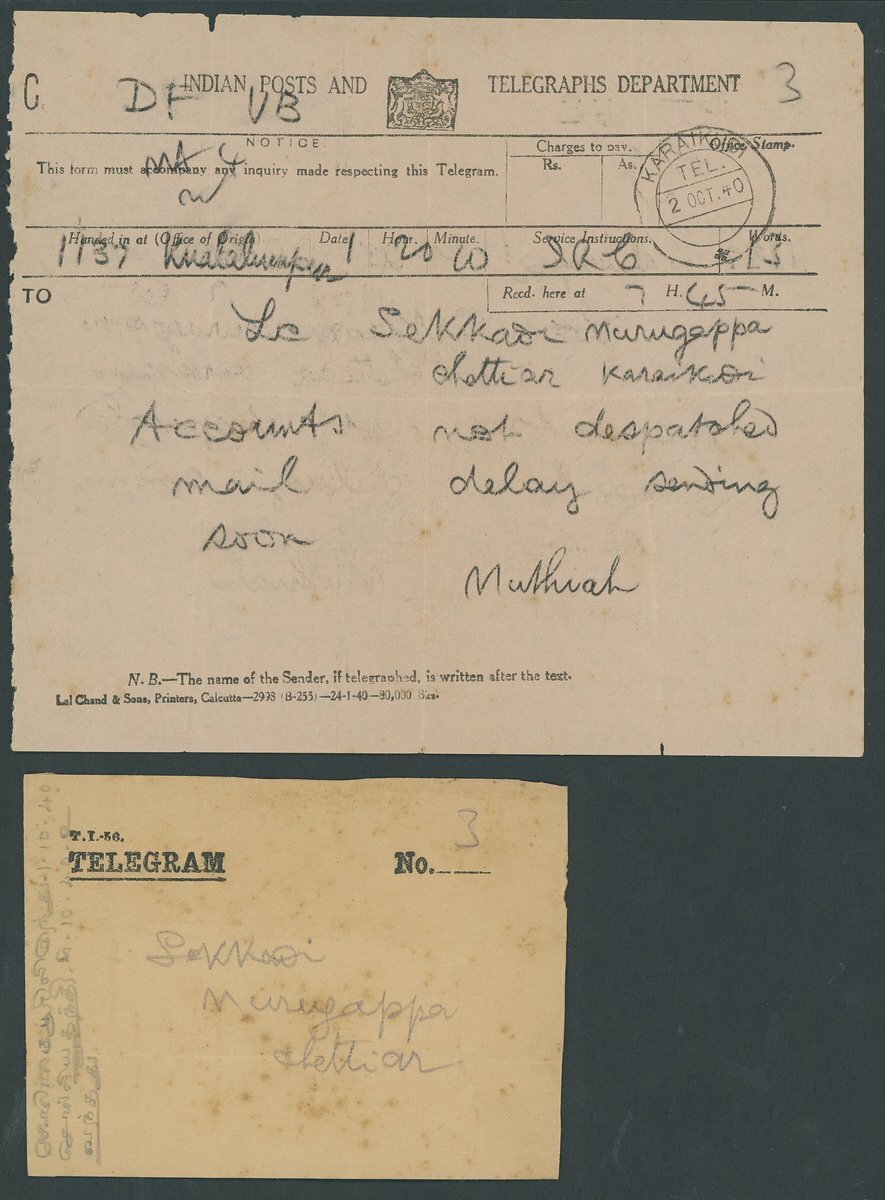 C. INDIAN POSTS AND TELEGRAPHS DEPARTMENT 3
DF VB
NOTICE.
This form must accompany any inquiry made respecting this Telegram.
Charges to pay.
Rs. As.
Office Stamp.
KARAIKUDI
TEL.
2 OCT. 40
Handed in at (Office of Origin). Date. Hour. Minute. Service Instructions. Words.
Kualalumpur 1 20
TO
Recd. here at 7 H. 45 M.
Lc Sekkadi Murugappa
chettiar Karaikdi
Accounts not despatched
mail delay sending
soon
Muthiah
N. B.—The name of the Sender, if telegraphed, is written after the text.
Lal Chand & Sons, Printers, Calcutta—2998 (B-255)—24-1-40—80,000 Bks.
T.I.-56.
TELEGRAM No. 3
Sekkadi
Murugappa
chettiar